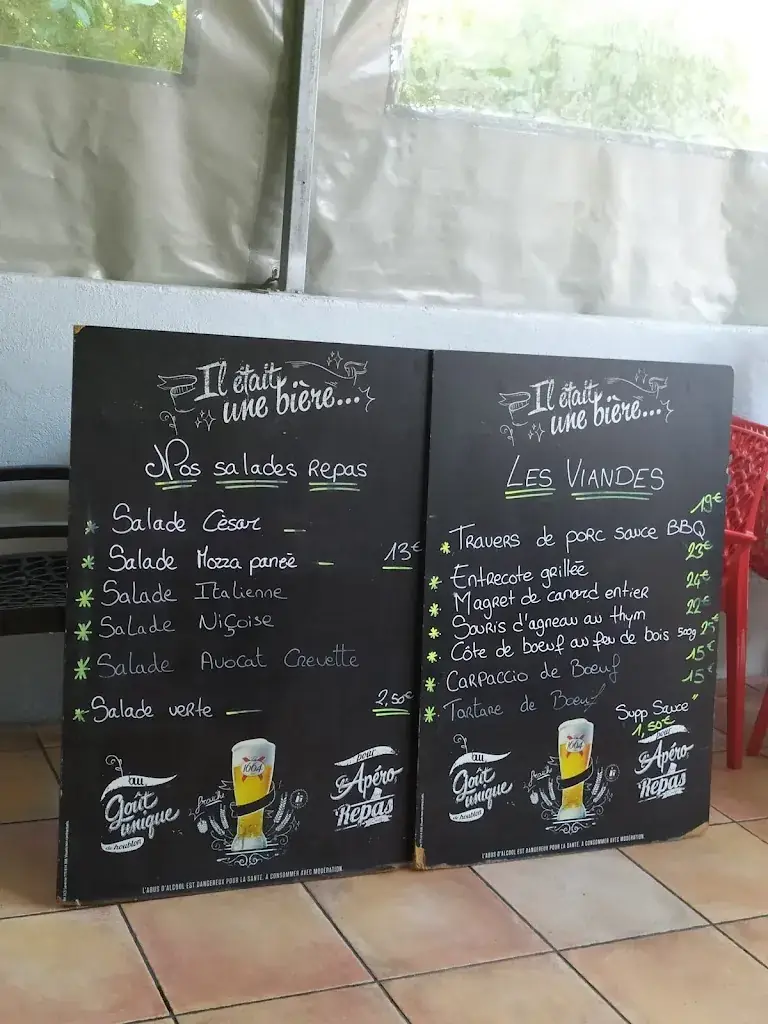 Il était
une bière...
Nos salades repas
* Salade Cèsar —
* Salade Mozza panée — 13€
* Salade Italienne
* Salade Niçoise
* Salade Avocat Crevette
* Salade verte — 2,50€
au
Goût
unique
du houblon
1664
pour
les Apéro,
Repas
L'ABUS D'ALCOOL EST DANGEREUX POUR LA SANTÉ, À CONSOMMER AVEC MODÉRATION.
Il était
une bière...
LES VIANDES
* Travers de porc sauce BBQ 19€
* Entrecote grillée 23€
* Magret de canard entier 24€
* Souris d'agneau au thym 22€
* Côte de boeuf au feu de bois 500g 25€
* Carpaccio de Boeuf 15€
* Tartare de Boeuf 15€
Supp Sauce"
1,50€
au
Goût
unique
du houblon
1664
pour
les Apéro,
Repas
L'ABUS D'ALCOOL EST DANGEREUX POUR LA SANTÉ, À CONSOMMER AVEC MODÉRATION.